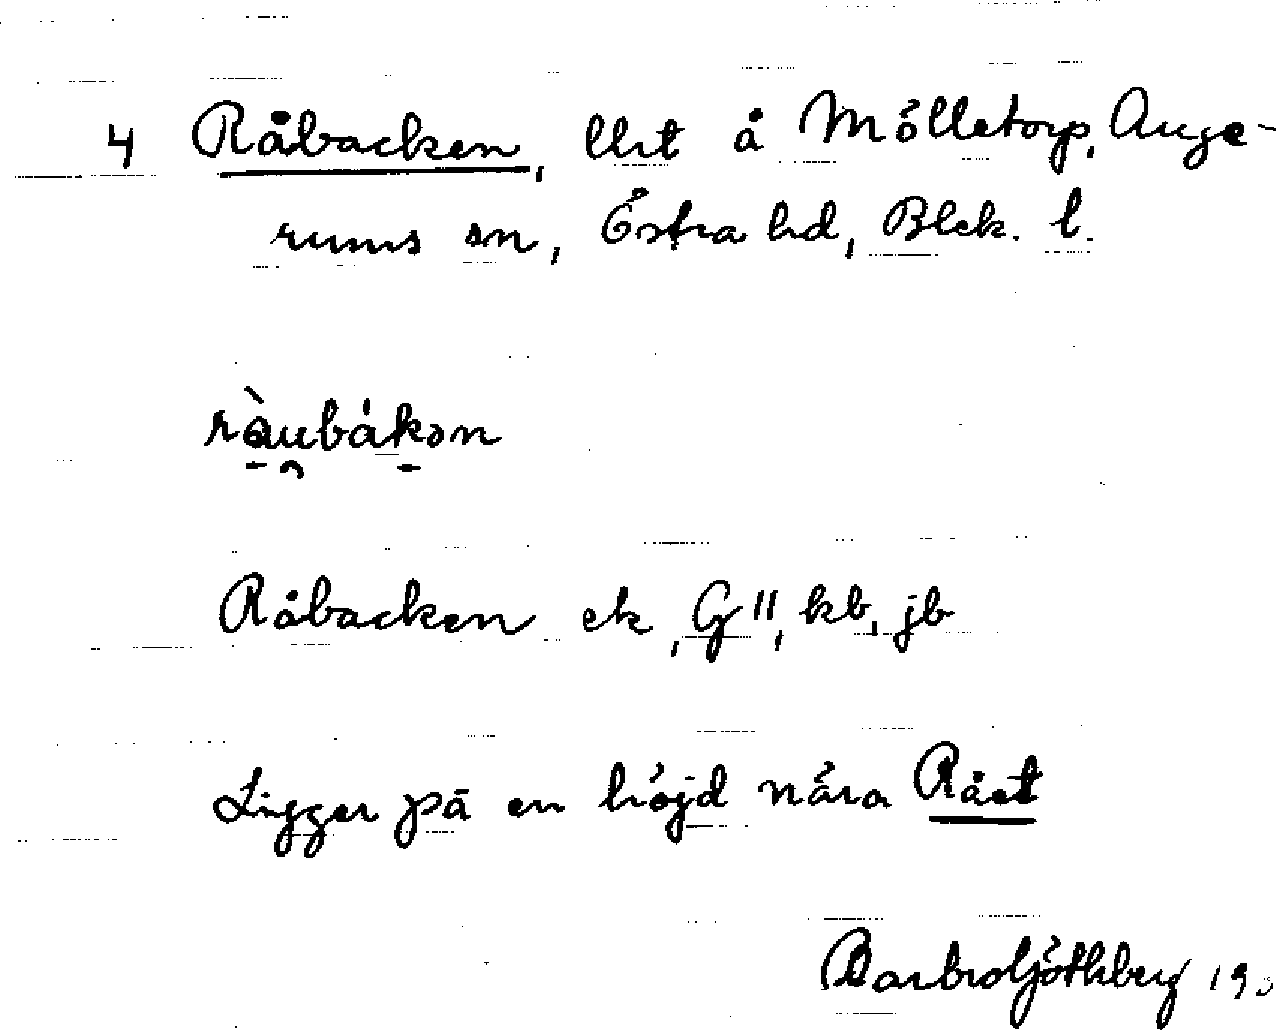 4 Råbacken, lht å Mölletorp, Auge-
rums sn, Östra hd, Blek. l.
ràu̯bákən
Råbacken ek, G II, kb, jb
Ligger på en höjd nära Rået
Barbro